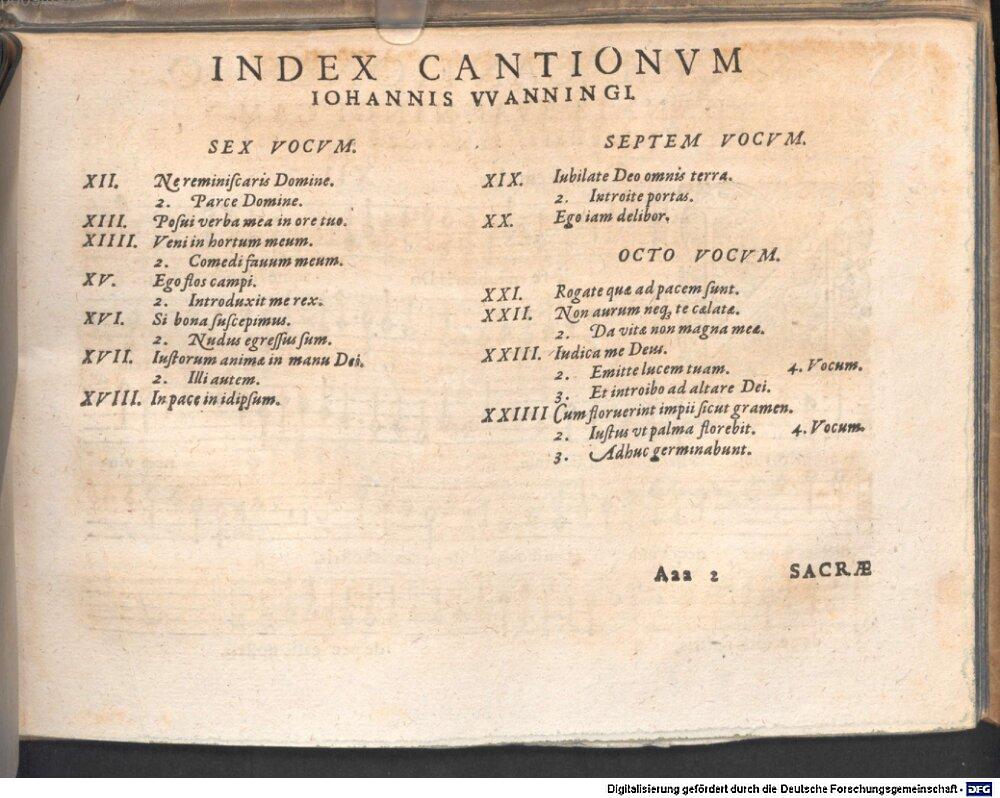 INDEX CANTIONVM
IOHANNIS VVANNINGI.
SEX VOCVM.
XII. Ne reminiſcaris Domine.
2. Parce Domine.
XIII. Poſui verba mea in ore tuo.
XIIII. Veni in hortum meum.
2. Comedi fauum meum.
XV. Ego flos campi.
2. Introduxit me rex.
XVI. Si bona ſuſcepimus.
2. Nudus egreſſus ſum.
XVII. Iuſtorum animæ in manu Dei.
2. Illi autem.
XVIII. In pace in idipſum.
SEPTEM VOCVM.
XIX. Iubilate Deo omnis terra.
2. Introite portas.
XX. Ego iam delibor.
OCTO VOCVM.
XXI. Rogate quæ ad pacem ſunt.
XXII. Non aurum neq; te cælatæ.
2. Da vitæ non magna meæ.
XXIII. Iudica me Deus.
2. Emitte lucem tuam. 4. Vocum.
3. Et introibo ad altare Dei.
XXIIII Cum floruerint impii ſicut gramen.
2. Iuſtus vt palma florebit. 4. Vocum.
3. Adhuc germinabunt.
Aaa 2 SACRÆ
Digitalisierung gefördert durch die Deutsche Forschungsgemeinschaft - DFG